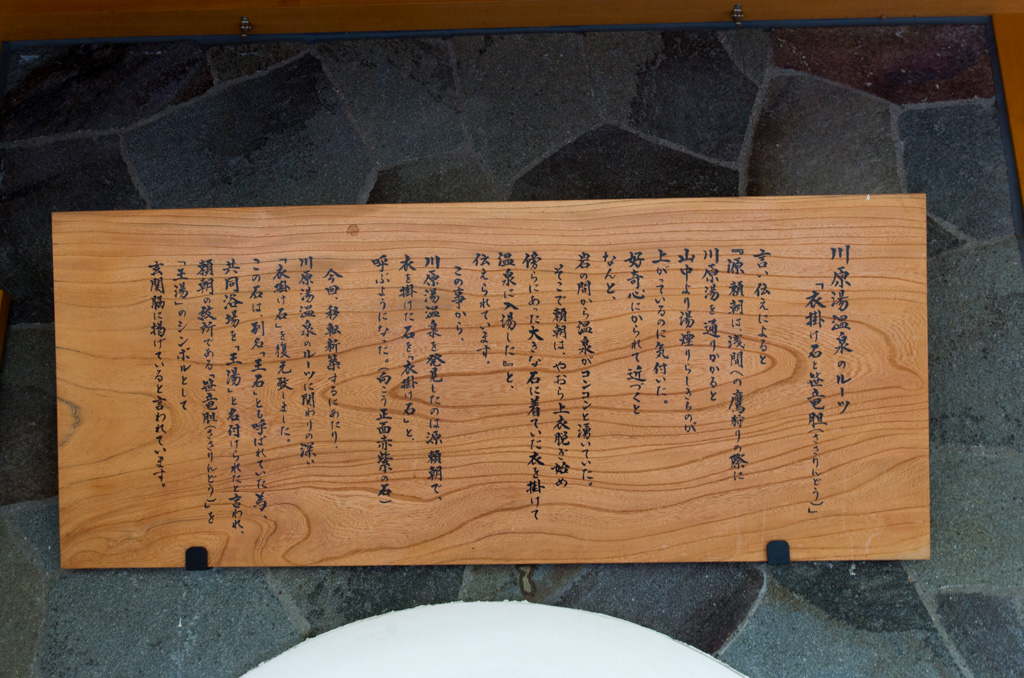 川原湯温泉のルーツ
「衣掛け石と笹竜胆(ささりんどう)」
言い伝えによると
『源 頼朝は、浅間への鷹狩りの際に
川原湯を通りかかると
山中より湯煙りらしきものが
上がっているのに気付いた。
好奇心にかられて近づくと
なんと、
岩の間から温泉がコンコンと湧いていた。
そこで頼朝は、やおら上衣脱ぎ始め
傍らにあった大きな石に着ていた衣を掛けて
温泉に入湯した』と、
伝えられています。
この事から、
川原湯温泉を発見したのは源頼朝で、
衣を掛けた石を「衣掛け石」と、
呼ぶようになった。(向こう正面赤紫の石)
今回、移転新築するにあたり、
川原湯温泉のルーツに関わりの深い
「衣掛け石」を復元致しました。
この石は、別名「王石」とも呼ばれていた為
共同浴場を「王湯」と名付けられたと言われ、
頼朝の紋所である「笹竜胆(ささりんどう)」を
「王湯」のシンボルとして
玄関脇に掲げていると言われています。